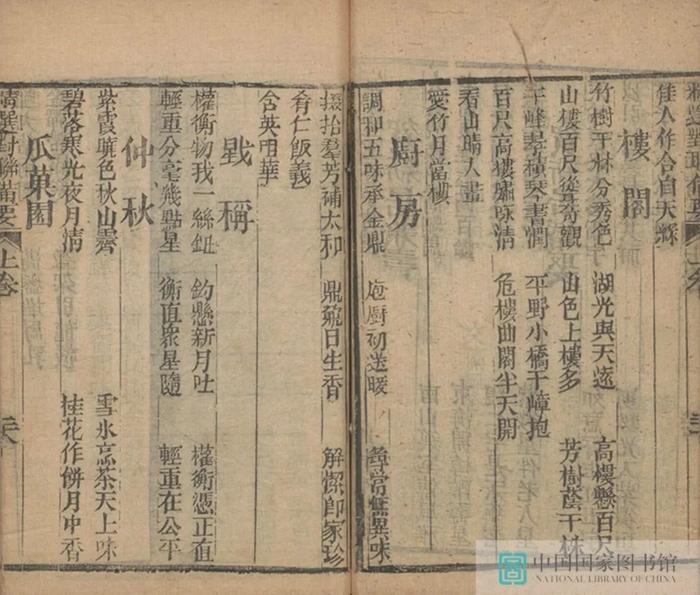 佳人作合自天緣
樓閣
竹樹千林分秀色 湖光與天遠 高樓懸百尺
山樓百尺聳奇觀 山色上樓多 芳樹蔭千株
千峰拳橫琴書潤 平野小橋千嶂抱
百尺高樓嘯咏清 危樓曲閣半天開
看山晴入畫
愛竹月當樓
廚房
調和五味承金鼎 庖廚初送暖 尋常無異味
掇拾羣芳補太和 鼎飪日生香 解潔即家珍
肴仁飯義
含英咀華
戥稱
權衡物我一絲鈕 鈎懸新月吐 權衡憑正直
輕重分毫幾點星 衡直衆星隨 輕重在公平
仲秋
紫霞曉色秋山霽 雪水烹茶天上味
碧落寒光夜月清 桂花作餅月中香
瓜菓園
精選對聯備要 上卷
中国国家图书馆
NATIONAL LIBRARY OF CHINA